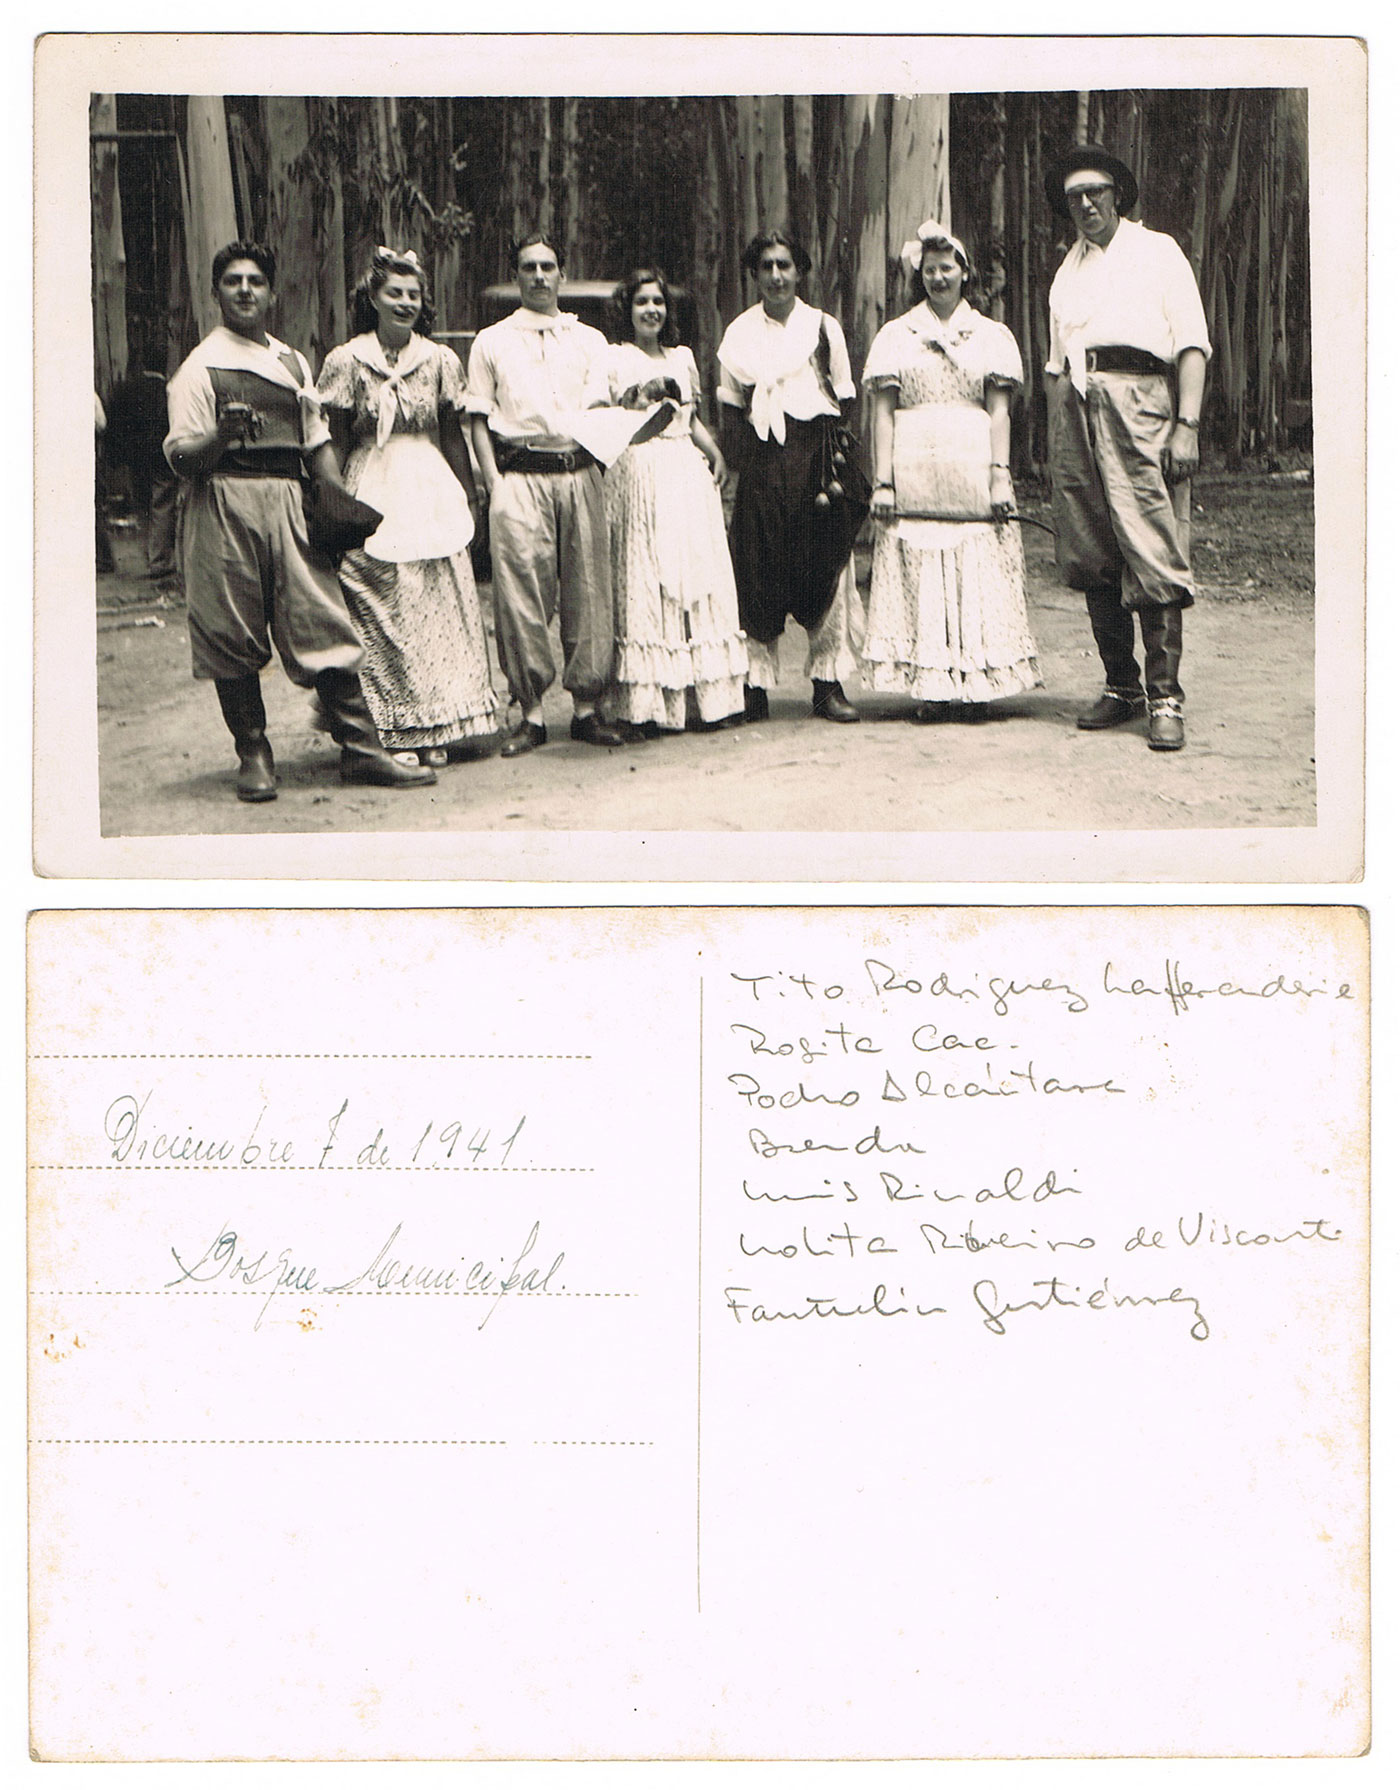 Diciembre 7 de 1941.
Bosque Municipal.
Tito Rodriguez Lafferanderie
Rosita Cac.
Pedro Alcántara
Brenda
Luis Rinaldi
Lolita Ribeiro de Visconti
Fantulin Gutiérrez